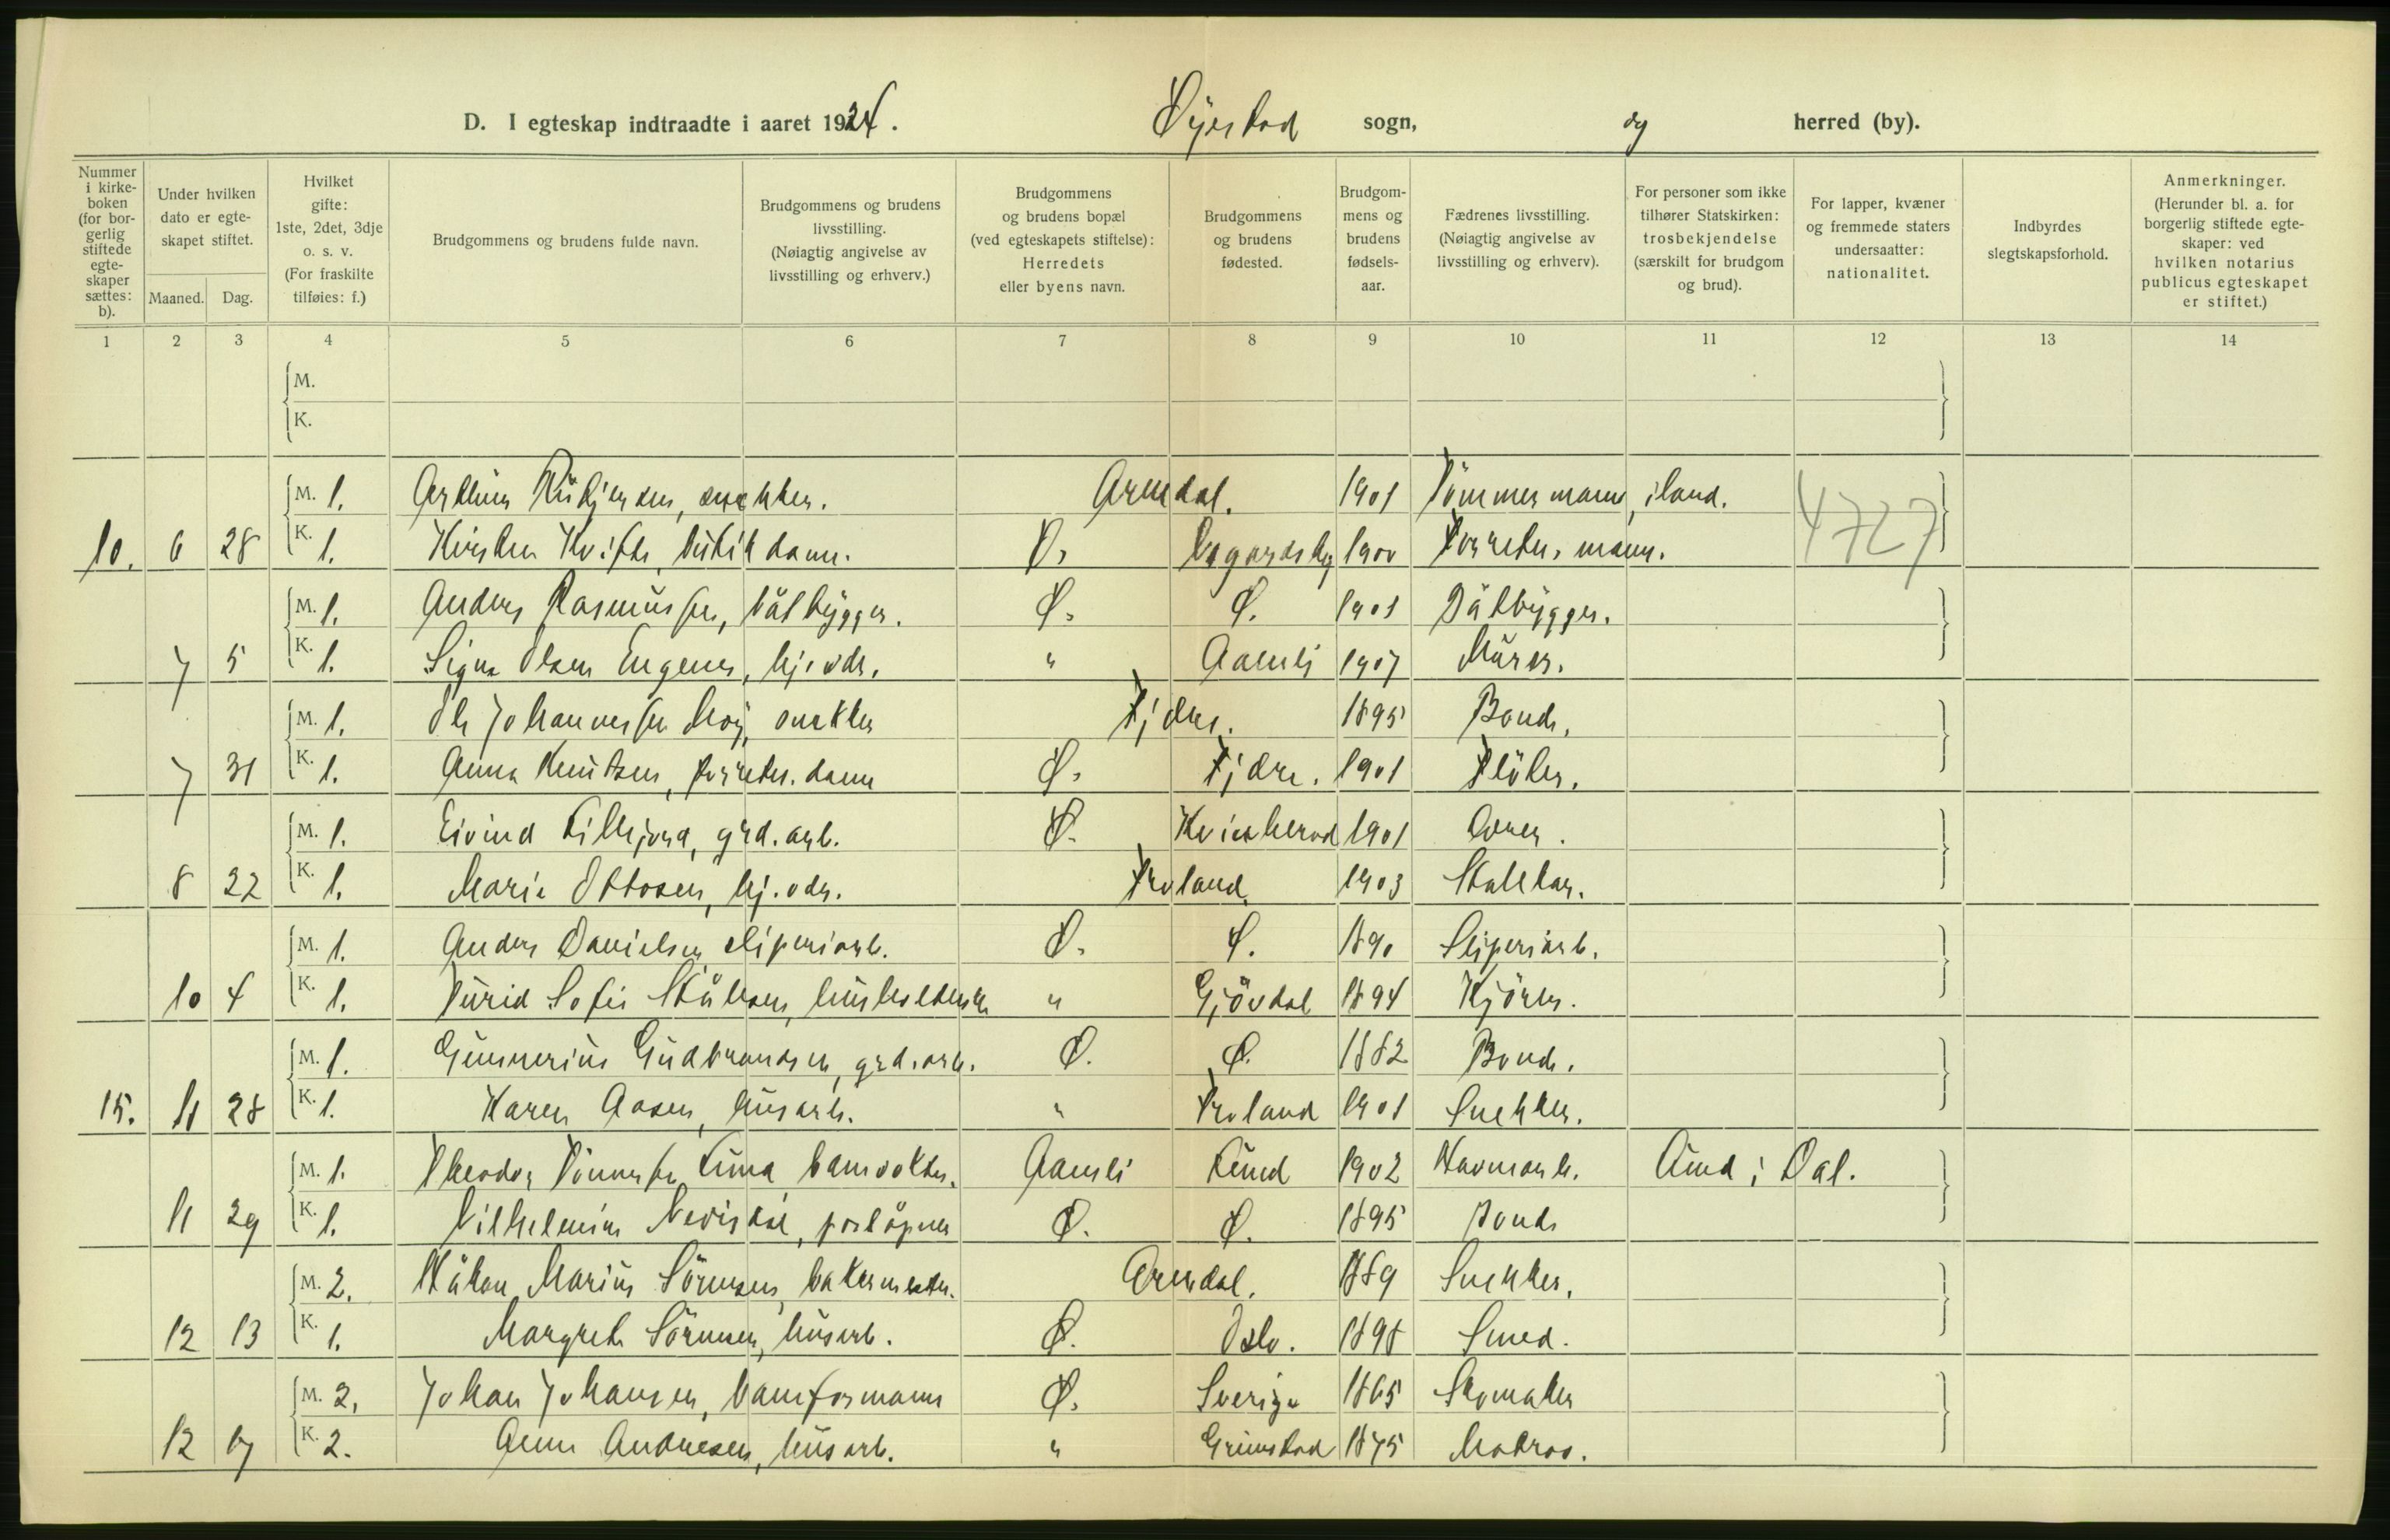 D. I egteskap indtraadte i aaret 1924. Øyestad sogn, og herred (by).
Nummer i kirkeboken (for borgerlig stiftede egteskaper sættes: b).
Under hvilken dato er egteskapet stiftet.
Maaned. Dag.
Hvilket gifte: 1ste, 2det, 3dje o. s. v. (For fraskilte tilføies: f.)
Brudgommens og brudens fulde navn.
Brudgommens og brudens livsstilling. (Nøiagtig angivelse av livsstilling og erhverv.)
Brudgommens og brudens bopæl (ved egteskapets stiftelse): Herredets eller byens navn.
Brudgommens og brudens fødested.
Brudgommens og brudens fødselsaar.
Fædrenes livsstilling. (Nøiagtig angivelse av livsstilling og erhverv).
For personer som ikke tilhører Statskirken: trosbekjendelse (særskilt for brudgom og brud).
For lapper, kvæner og fremmede staters undersaatter: nationalitet.
Indbyrdes slegtskapsforhold.
Anmerkninger. (Herunder bl. a. for borgerlig stiftede egteskaper: ved hvilken notarius publicus egteskapet er stiftet.)
1 2 3 4 5 6 7 8 9 10 11 12 13 14
M.
K.
M. 1. snekker. Arendal. 1901 Tömmermann, iland. 4727
10. 6 28 K. 1. Kirsten Kvifte, butikdame. Ø. Vegardshei 1900 Forretn. mann.
M. 1. Anders Rasmussen, båtbygger. Ø. Ø. 1901 Båtbygger.
7 5 K. 1. Signe Olsen Engenes, hj. vdr. " Aamli 1907 Murer.
M. 1. Ole Johannessen Moy, snekker Fjære. 1895 Bonde.
7 31 K. 1. Anna Knutsen, forretn. dame Ø. Fjære. 1901 Flöter.
M. 1. Eivind grd. arb. Ø. Kvinherad 1901
8 22 K. 1. Marie Ottosen, hj. vdr. Froland. 1903
M. 1. Anders Danielsen, sliperiarb. Ø. Ø. 1890 Sliperiarb.
10 4 K. 1. Turid Sofie husholderske " Gjövdal 1894 Kjörer.
M. 1. Gunnerius Gudbrandsen, grd. arb. Ø. Ø. 1882 Bonde.
15. 11 28 K. 1. Karen Aasen, husarb. " Froland 1901 Snekker.
M. 1. Theodor Tönnesen banevokter. Aamli 1902 Havnearb. i Dal.
11 29 K. 1. Vilhelmine poståpner Ø. Ø. 1895 Bonde
M. 2. Håkon Marius Sörensen, bakermester. Arendal. 1889 Snekker.
12 13 K. 1. Margrete Sörensen, husarb. Ø. Oslo. 1898 Smed.
M. 2. Johan Johansen, baneformann Ø. Sverige 1865 Skomaker
12 17 K. 2. Anne Andresen, husarb. " Grimstad 1875 Matros.